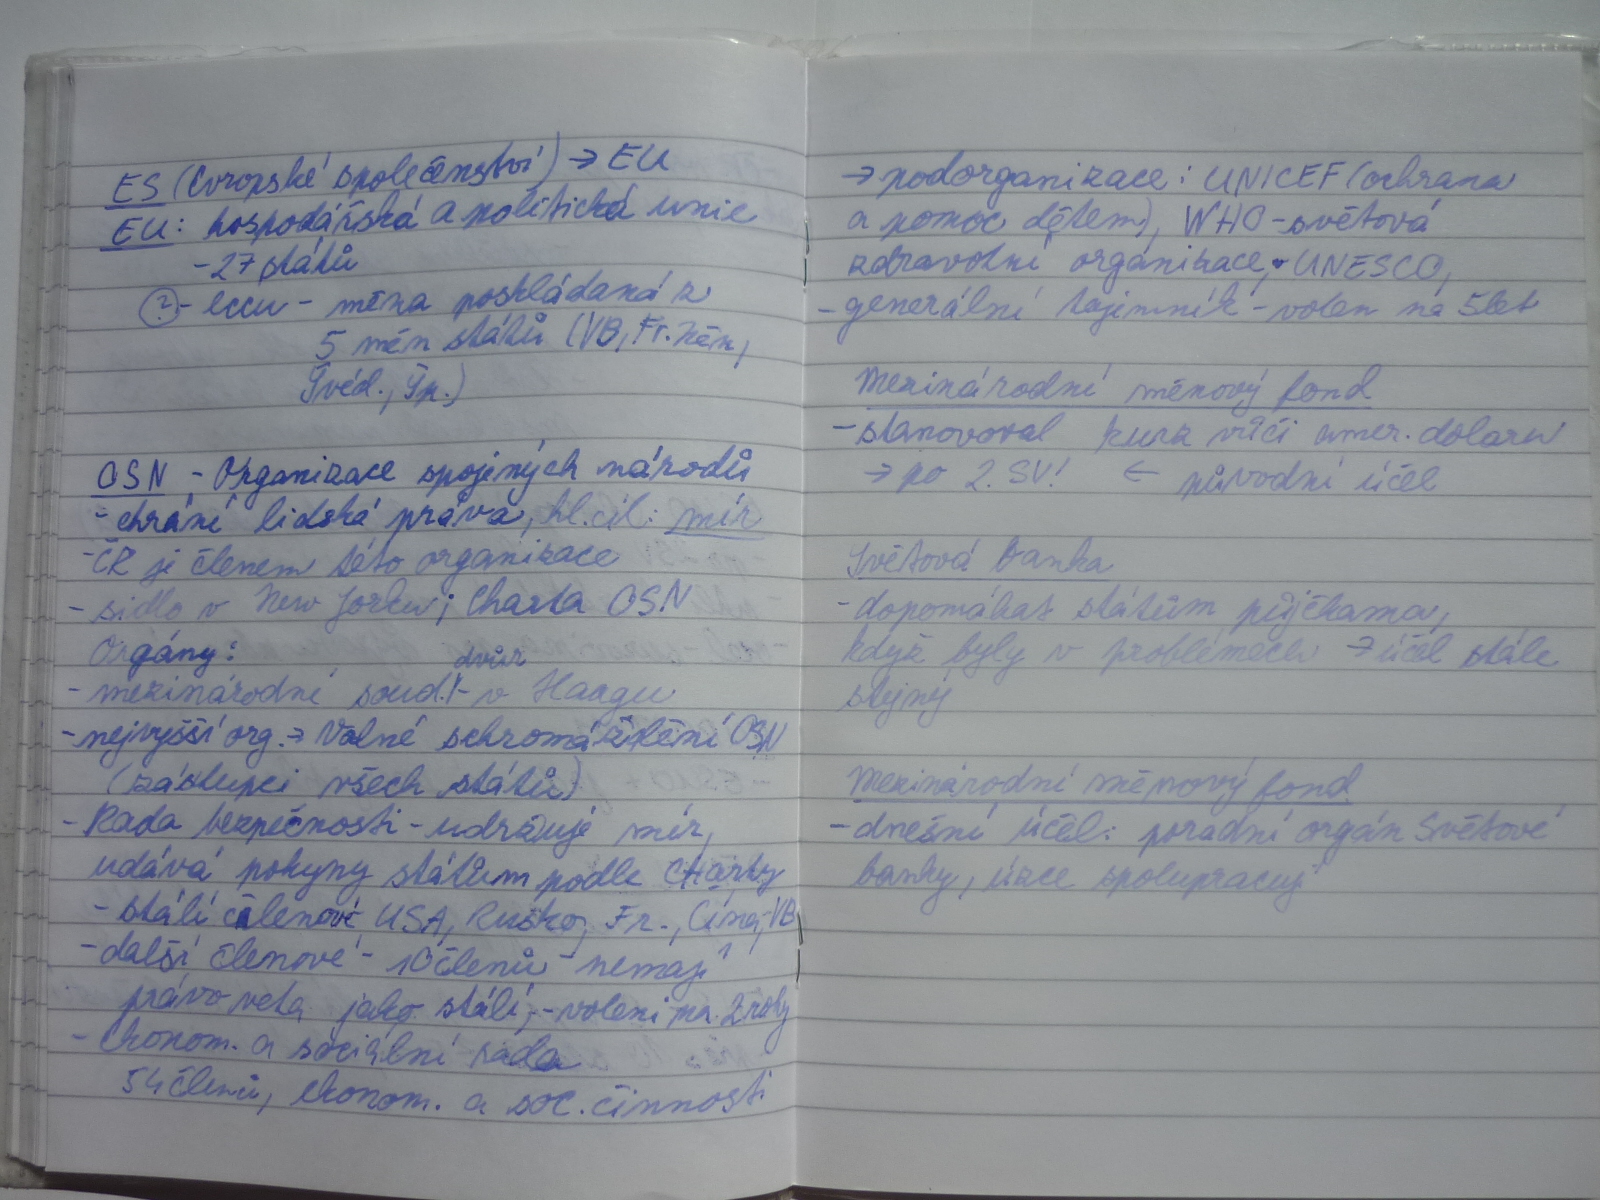 ES (Evropské společenství) → EU
EU: hospodářská a politická unie
- 27 států
? - eccu - měna poskládaná z
5 měn států (VB, Fr. Něm,
Švéd., Šp.)
OSN - Organizace spojených národů
- chrání lidská práva, hl. cíl: mír
- ČR je členem této organizace
- sídlo v New Jorku; Charta OSN
Orgány:
dvůr
- mezinárodní soud. - v Haagu
- nejvyšší org. → Valné schromáždění OSN
(zástupci všech států)
- Rada bezpečnosti - udržuje mír,
udává pokyny státům podle CHarty
- stálí členové USA, Rusko, Fr., Čína, VB
- další členové - 10 členů - nemají
právo veta jako stálí, - voleni na 2 roky
- Ekonom. a sociální rada
54 členů, ekonom. a soc. činnosti
→ podorganizace: UNICEF (ochrana
a pomoc dětem), WHO - světová
zdravotní organizace, UNESCO,
- generální tajemník - volen na 5 let
Mezinárodní měnový fond
- stanovoval kurz vůči amer. dolaru
→ po 2. SV! ← původní účel
Světová banka
- dopomáhat státům půjčkama,
když byly v problémech → účel stále
stejný
Mezinárodní měnový fond
- dnešní účel: poradní orgán Světové
banky, úzce spolupracují